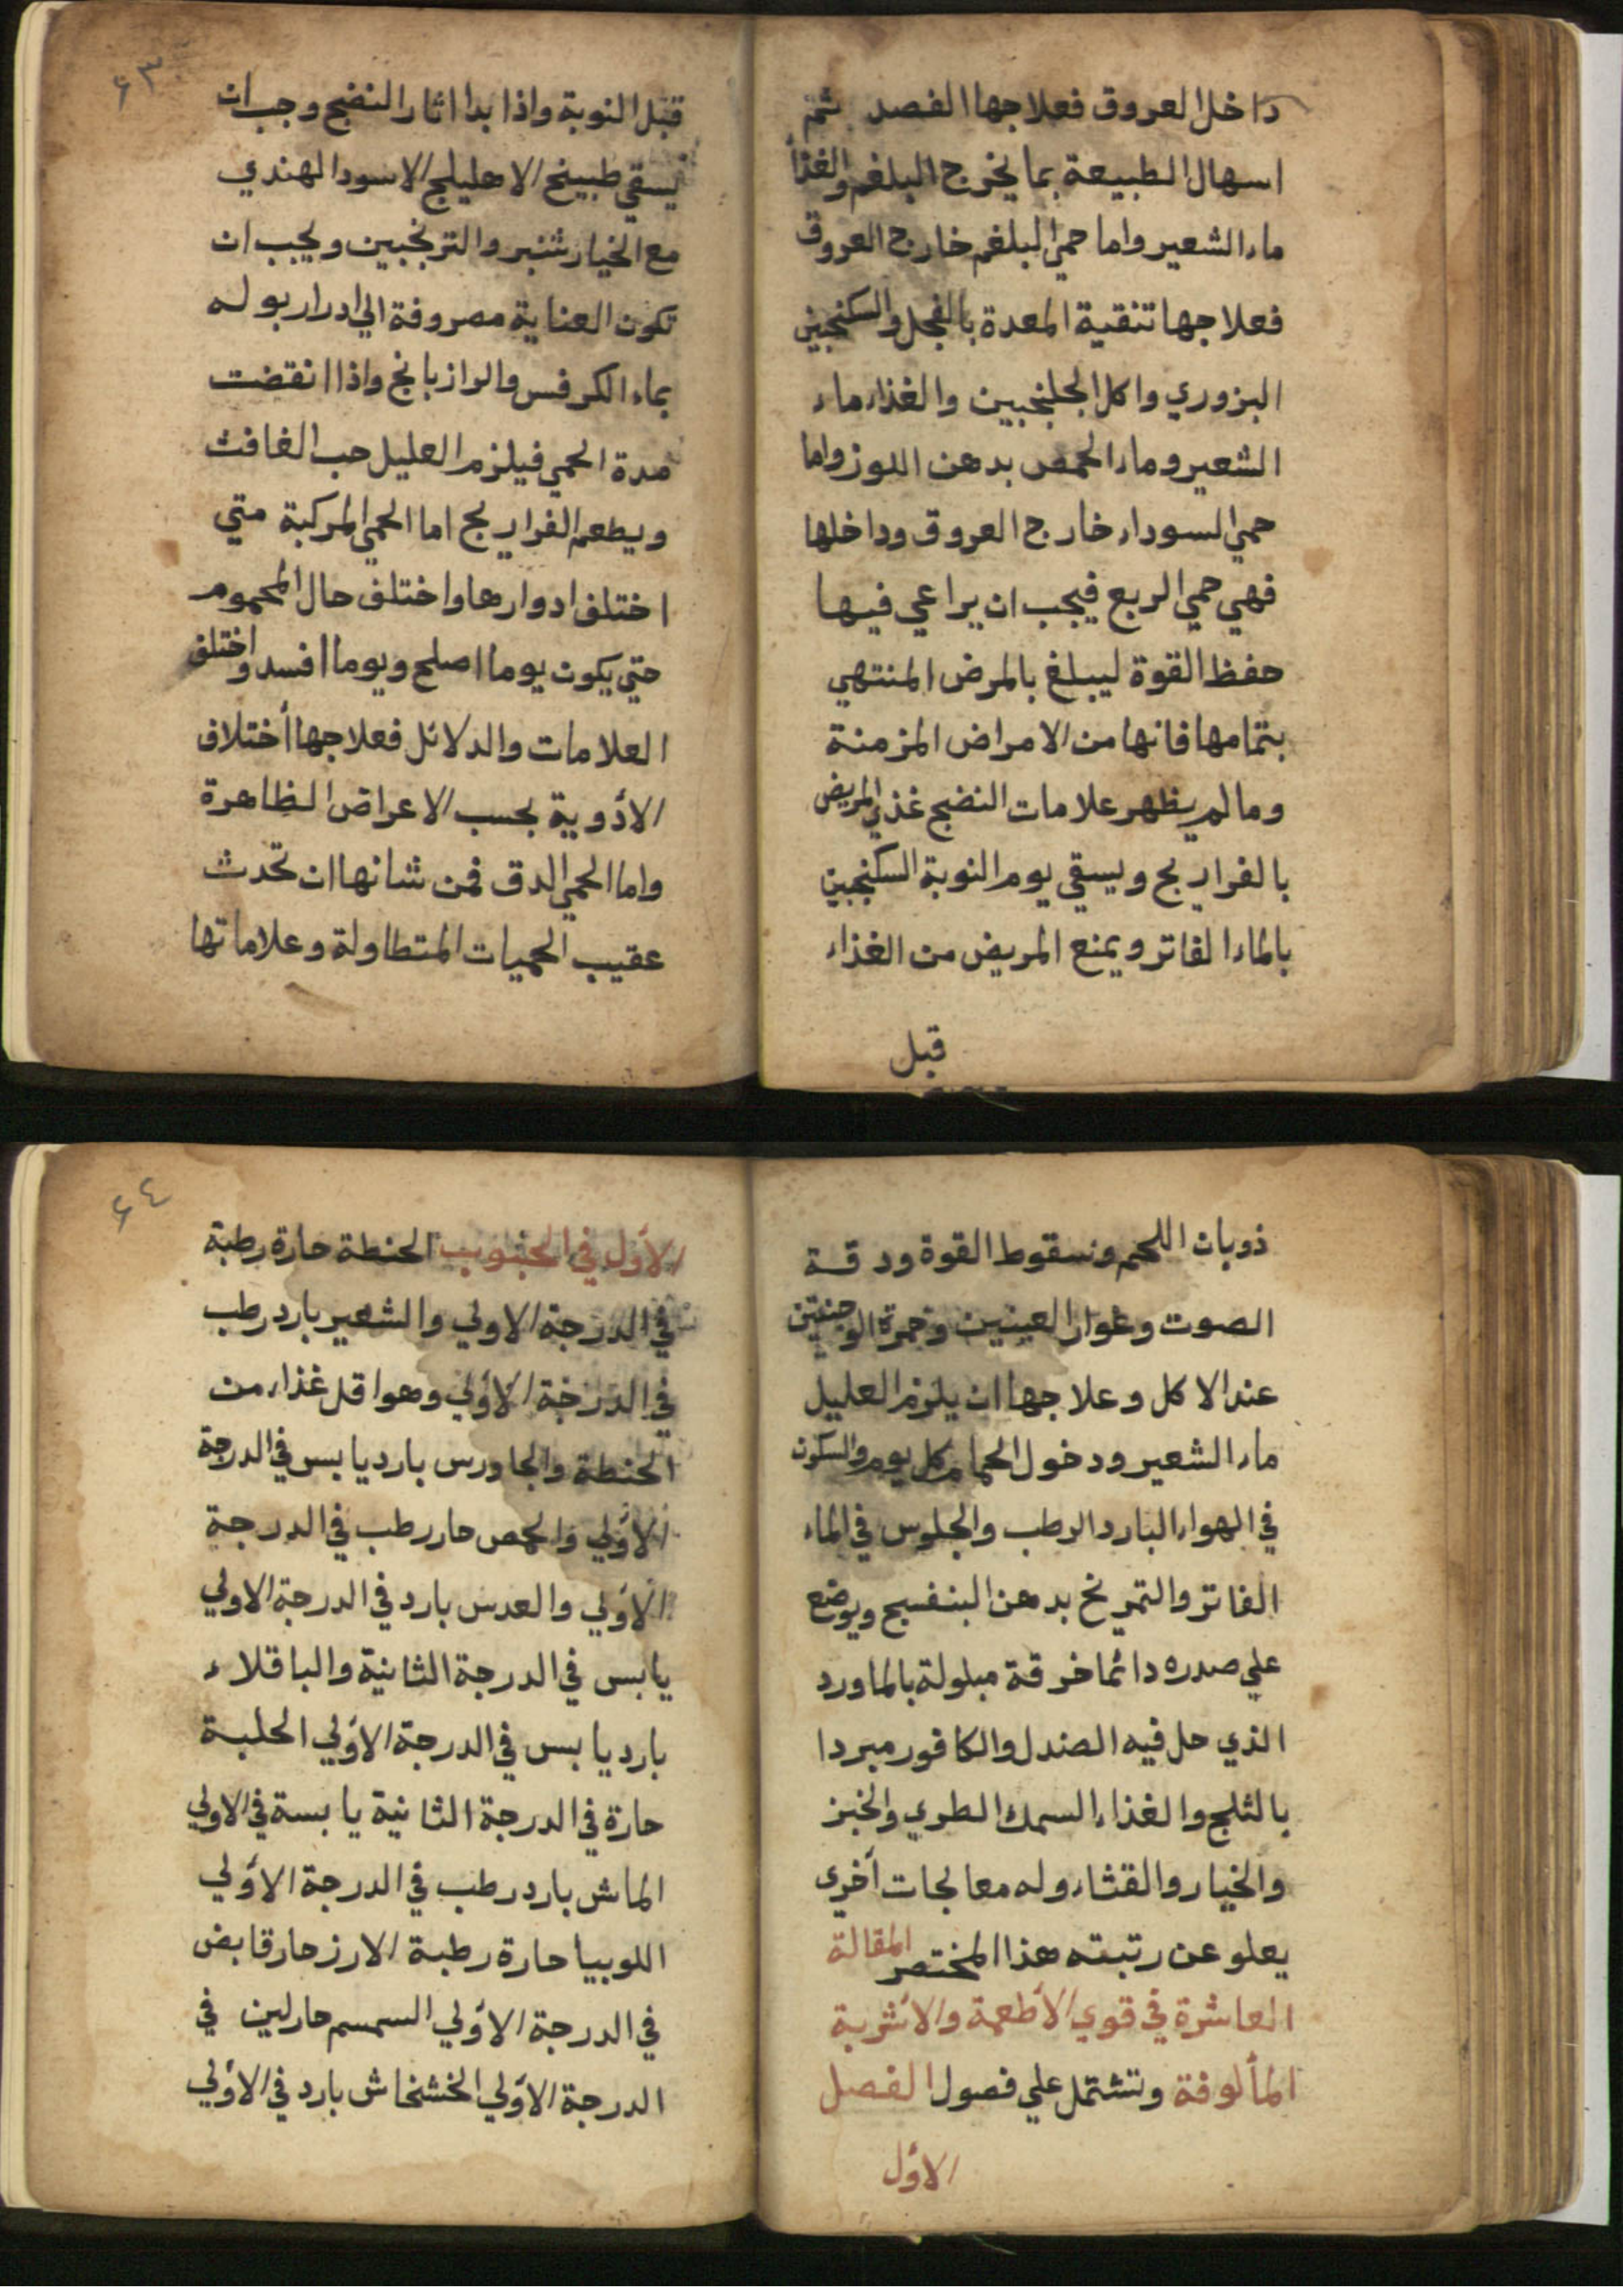 داخل العروق فعلاجها الفصد ثم
اسهال الطبيعة بما يخرج البلغم والغذا
ماء الشعير واما حمي البلغم خارج العروق
فعلاجها تنقية المعدة بالفجل والسكنجبين
البزوري واكل الجلنجبين والغذاء ماء
الشعير وماء الحمص بدهن اللوز واما
حمي السوداء خارج العروق وداخلها
فهي حمي الربع فيجب ان يراعي فيها
حفظ القوة ليبلغ بالمرض المنتهي
بتمامها فانها من الامراض المزمنة
وما لم يظهر علامات النضج غذي المريض
بالفراريج ويسقي يوم النوبة السكنجبين
بالماء الفاتر ويمنع المريض من الغذاء
قبل
٦٣
قبل النوبة واذا بدا اثار النضج وجب ان
يسقي طبيخ الاهليلج الاسود الهندي
مع الخيار شنبر والترنجبين ويجب ان
تكون العناية مصروفة الي ادرار بوله
بماء الكرفس والرازيانج واذا انقضت
مدة الحمي فيلزم العليل حب الغافث
ويطعم الفراريج اما الحمي المركبة متي
اختلف ادوارها واختلف حال المحموم
حتي يكون يوما اصلح ويوما افسد واختلف
العلامات والدلائل فعلاجها أختلاف
الأدوية بحسب الاعراض الظاهرة
واما الحمي الدق فمن شانها ان تحدث
عقيب الحميات المتطاولة وعلاماتها
ذوبان اللحم وسقوط القوة ودقة
الصوت وغوار العينين وحمرة الوجنتين
عند الاكل وعلاجها ان يلزم العليل
ماء الشعير ودخول الحمام كل يوم والسكون
في الهواء البارد الرطب والجلوس في الماء
الفاتر والتمريخ بدهن البنفسج ويوضع
علي صدره دائما خرقة مبلولة بالماورد
الذي حل فيه الصندل والكافور مبردا
بالثلج والغذاء السمك الطري والخبز
والخيار والقثاء وله معالجات أخري
يعلو عن رتبته هذا المختصر المقالة
العاشرة في قوي الأطعمة والأشربة
المألوفة وتشتمل علي فصول الفصل
الأول
٦٤
الأول في الحبوب الحنطة حارة رطبة
في الدرجة الاولي والشعير بارد رطب
في الدرجة الأولي وهو اقل غذاء من
الحنطة والجاورس بارد يابس في الدرجة
الأولي والحمص حار رطب في الدرجة
الأولي والعدس بارد في الدرجة الاولي
يابس في الدرجة الثانية والباقلاء
بارد يابس في الدرجة الأولي الحلبة
حارة في الدرجة الثانية يابسة في الاولي
الماش بارد رطب في الدرجة الأولي
اللوبيا حارة رطبة الارز حار قابض
في الدرجة الأولي السمسم حار لين في
الدرجة الأولي الخشخاش بارد في الأولي